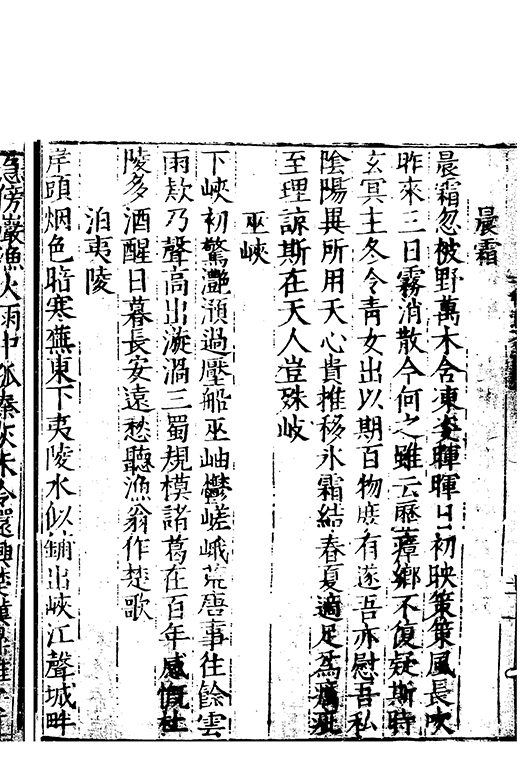 晨霜
晨霜忽被野萬木含凍委暉暉日初映策策風長吹
昨來三日霧消散今何之雖云歷瘴鄉不復疑斯時
玄冥主冬令青女出以期百物度有遂吾亦慰吾私
陰陽異所用天心貴推移氷霜結春夏適足爲癘疵
至理諒斯在天人豈殊岐
巫峽
下峽初驚灩澦過壓船巫岫鬱嵯峨荒唐事往餘雲
雨欸乃聲高出漩渦三蜀規模諸葛在百年感慨杜
陵多酒醒日暮長安遠愁聽漁翁作楚歌
泊夷陵
岸頭烟色暗寒蕪東下夷陵水似鋪出峽江聲城畔
急傍巖漁火雨中孤秦吹木令還興楚漢